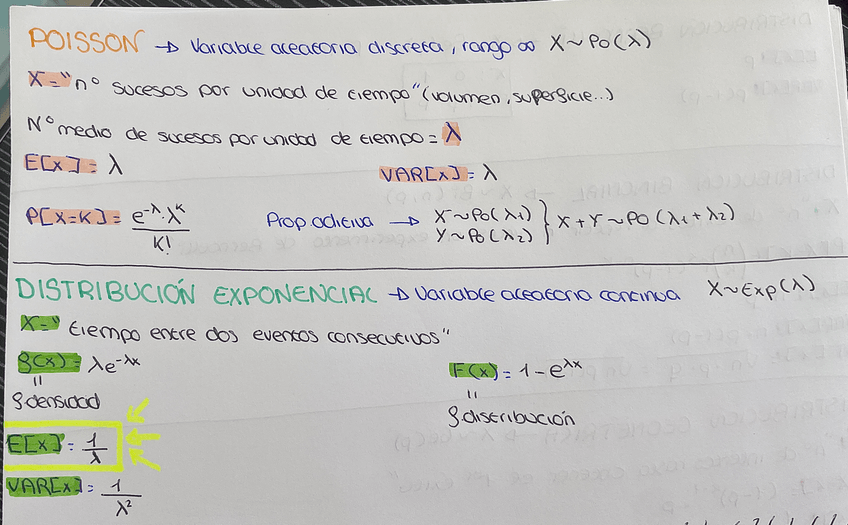 POISSON → Variable aleatoria discreta, rango ∞ X~Po(λ)
X="nº sucesos por unidad de tiempo" (volumen, superficie...)
Nº medio de sucesos por unidad de tiempo = λ
E[X] = λ VAR[X] = λ
P[X=K] = e^-λ · λ^K / K! Prop. aditiva → X~Po(λ1) Y~Po(λ2) } X + Y ~ Po (λ1 + λ2)
DISTRIBUCIÓN EXPONENCIAL → Variable aleatoria continua X~Exp(λ)
X=" tiempo entre dos eventos consecutivos"
f(x) = λe^-λx F(x) = 1 - e^λx
" "
f densidad f distribución
E[X] = 1/λ
VAR[X] = 1/λ²